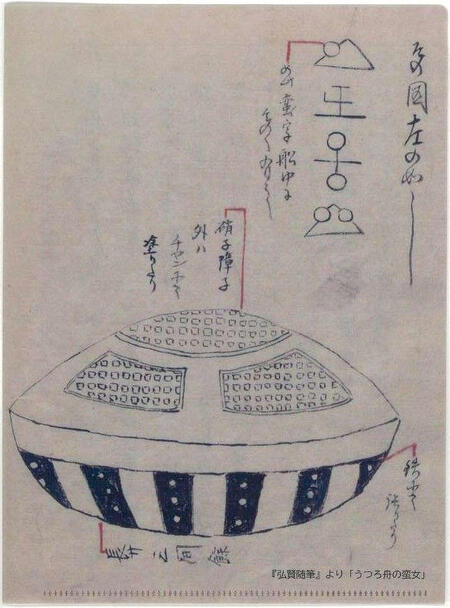 図左の如し
此蛮字船中に
硝子障子
外ハ
チヤンにて
塗りたり
鉄にて
張りたり
長サ三間餘
『弘賢随筆』より「うつろ舟の蛮女」